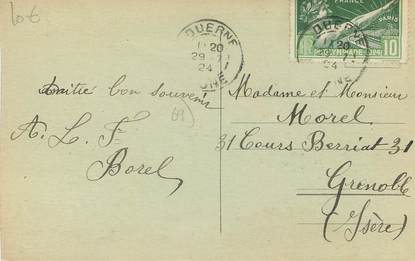 lot
FRANCE
PARIS
OLYMPIADE 1924
10
DUERNE
11 20
29 -7
24
DUERNE
11 20
24
Amitié bon souvenir
A. L. F.
Borel
69
Madame et Monsieur
Morel
31 Cours Berriat 31
Grenoble
(Isère)